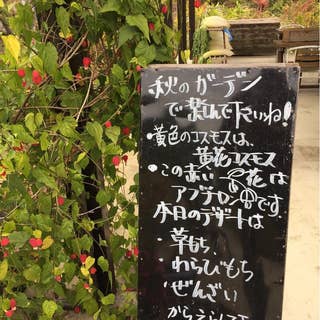 秋のガーデン
で楽しんで下さいね!
・黄色のコスモスは、
黄花コスモス
・この赤い花は
アブチロンです。
本日のデザートは
・草もち、
・わらびもち
・ぜんざい
からえらんで